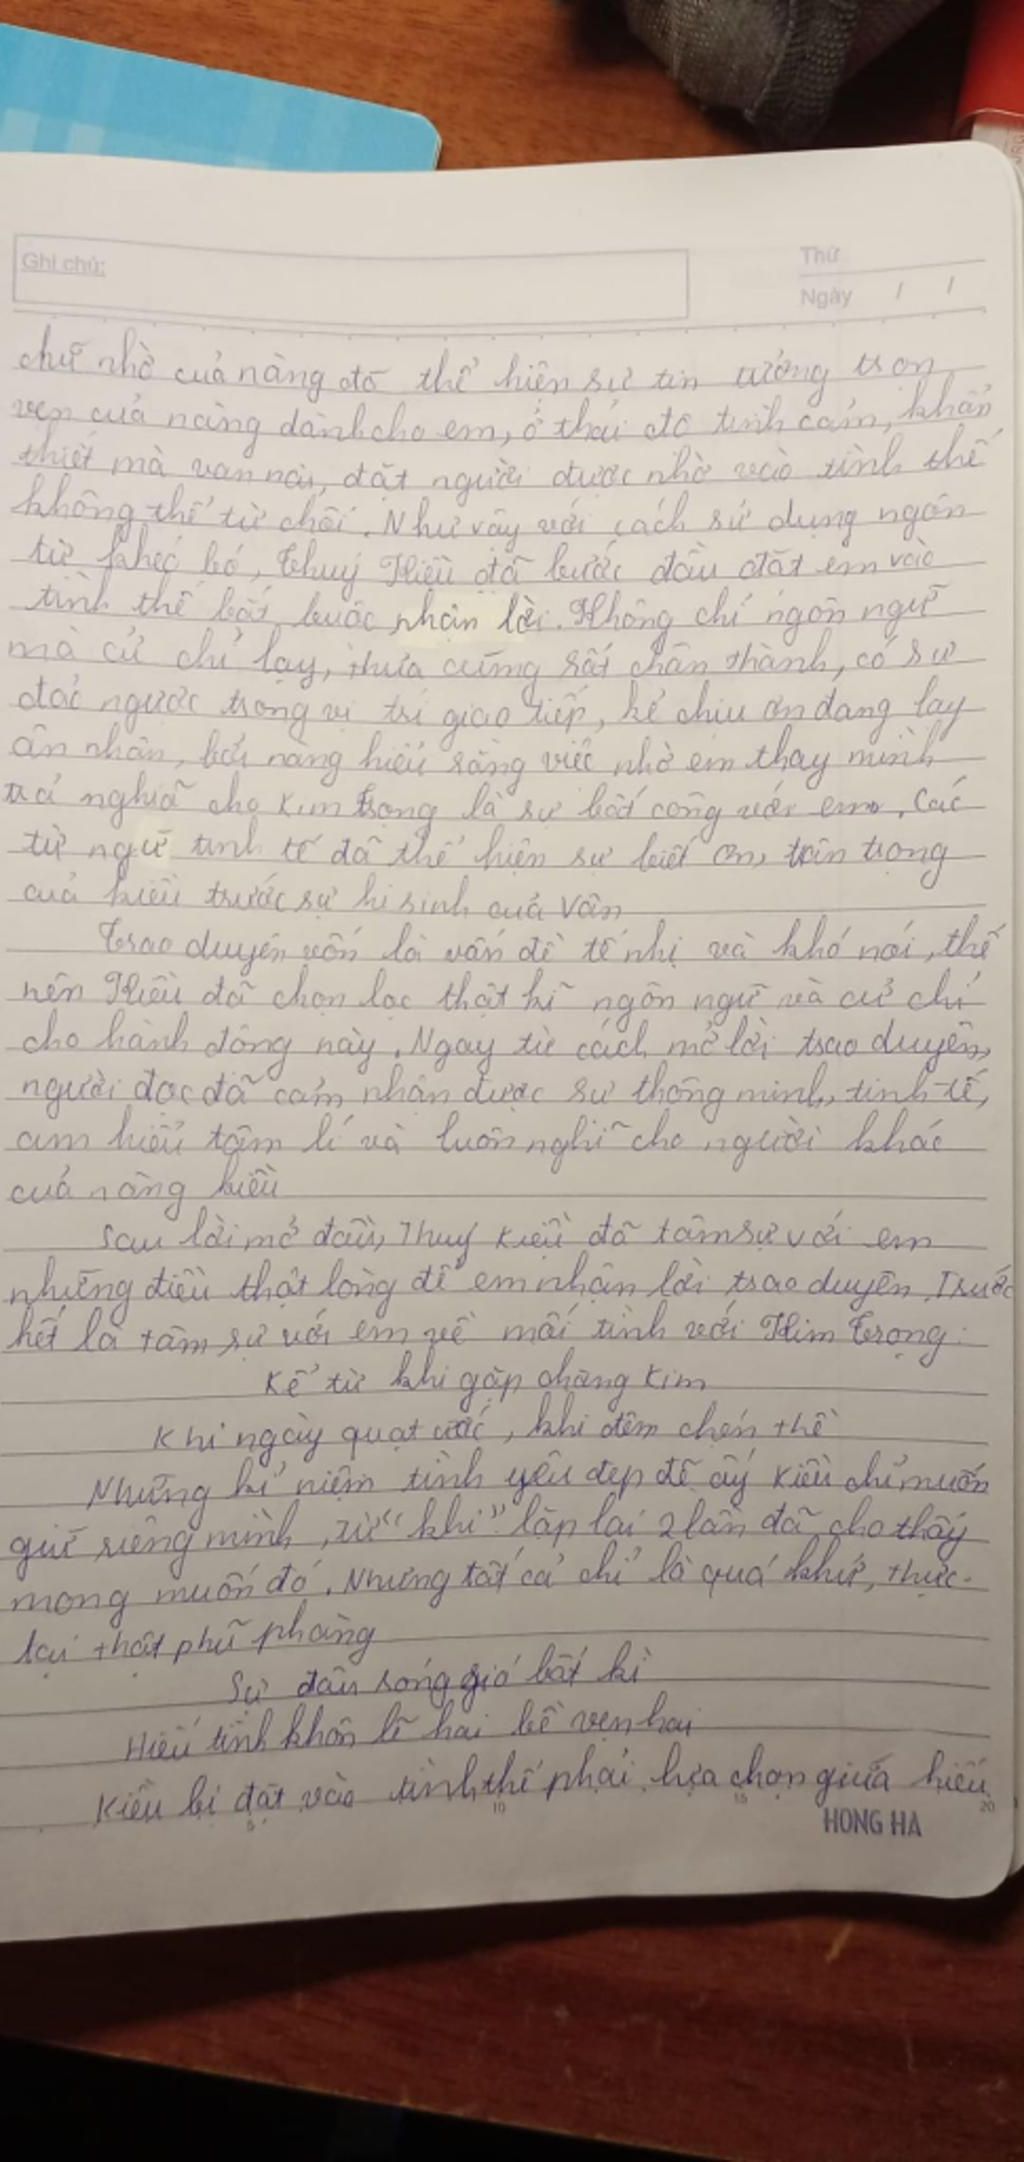 Ghi chú:
Thứ
Ngày / /
chữ nhờ của nàng đã thể hiện sự tin tưởng trọn
vẹn của nàng dành cho em, ở thái độ tình cảm, khẩn
thiết mà van nài, đặt người được nhờ vào tình thế
không thể từ chối. Như vậy với cách sử dụng ngôn
từ khéo bó, Thuý Kiều đã bước đầu đặt em vào
tình thế bắt buộc nhận lời. Không chỉ ngôn ngữ
mà cử chỉ lạy, thưa cũng rất chân thành, có sự
đảo ngược trong vị trí giao tiếp, kẻ chịu ơn đang lạy
ân nhân, bởi nàng hiểu rằng việc nhờ em thay mình
trả nghĩa cho Kim Trọng là sự bất công với em. Các
từ ngữ tinh tế đã thể hiện sự biết ơn, trân trọng
của kiều trước sự hi sinh của Vân
Trao duyên vốn là vấn đề tế nhị và khó nói, thế
nên Kiều đã chọn lọc thật kĩ ngôn ngữ và cử chỉ
cho hành động này. Ngay từ cách mở lời trao duyên,
người đọc đã cảm nhận được sự thông minh, tinh tế,
am hiểu tâm lí và luôn nghĩ cho người khác
của nàng kiều
Sau lời mở đầu, Thuý Kiều đã tâm sự với em
những điều thật lòng để em nhận lời trao duyên. Trước
hết là tâm sự với em về mối tình với Kim Trọng:
Kể từ khi gặp chàng Kim
Khi ngày quạt ước, khi đêm chén thề
Những kỉ niệm tình yêu đẹp đẽ ấy Kiều chỉ muốn
giữ riêng mình, từ "khi" lặp lại 2 lần đã cho thấy
mong muốn đó. Nhưng tất cả chỉ là quá khứ, thực
tại thật phũ phàng
Sự đâu sóng gió bất kì
Hiếu tình khôn lẽ hai bề vẹn hai
Kiều bị đặt vào tình thế phải lựa chọn giữa hiếu
5 10 15 20
HONG HA